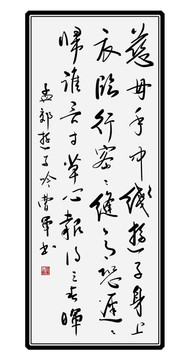 慈母手中綫遊子身上
衣臨行密〻縫意恐遲〻
歸誰言寸草心報得三春暉
孟郊遊子吟 曹軍書